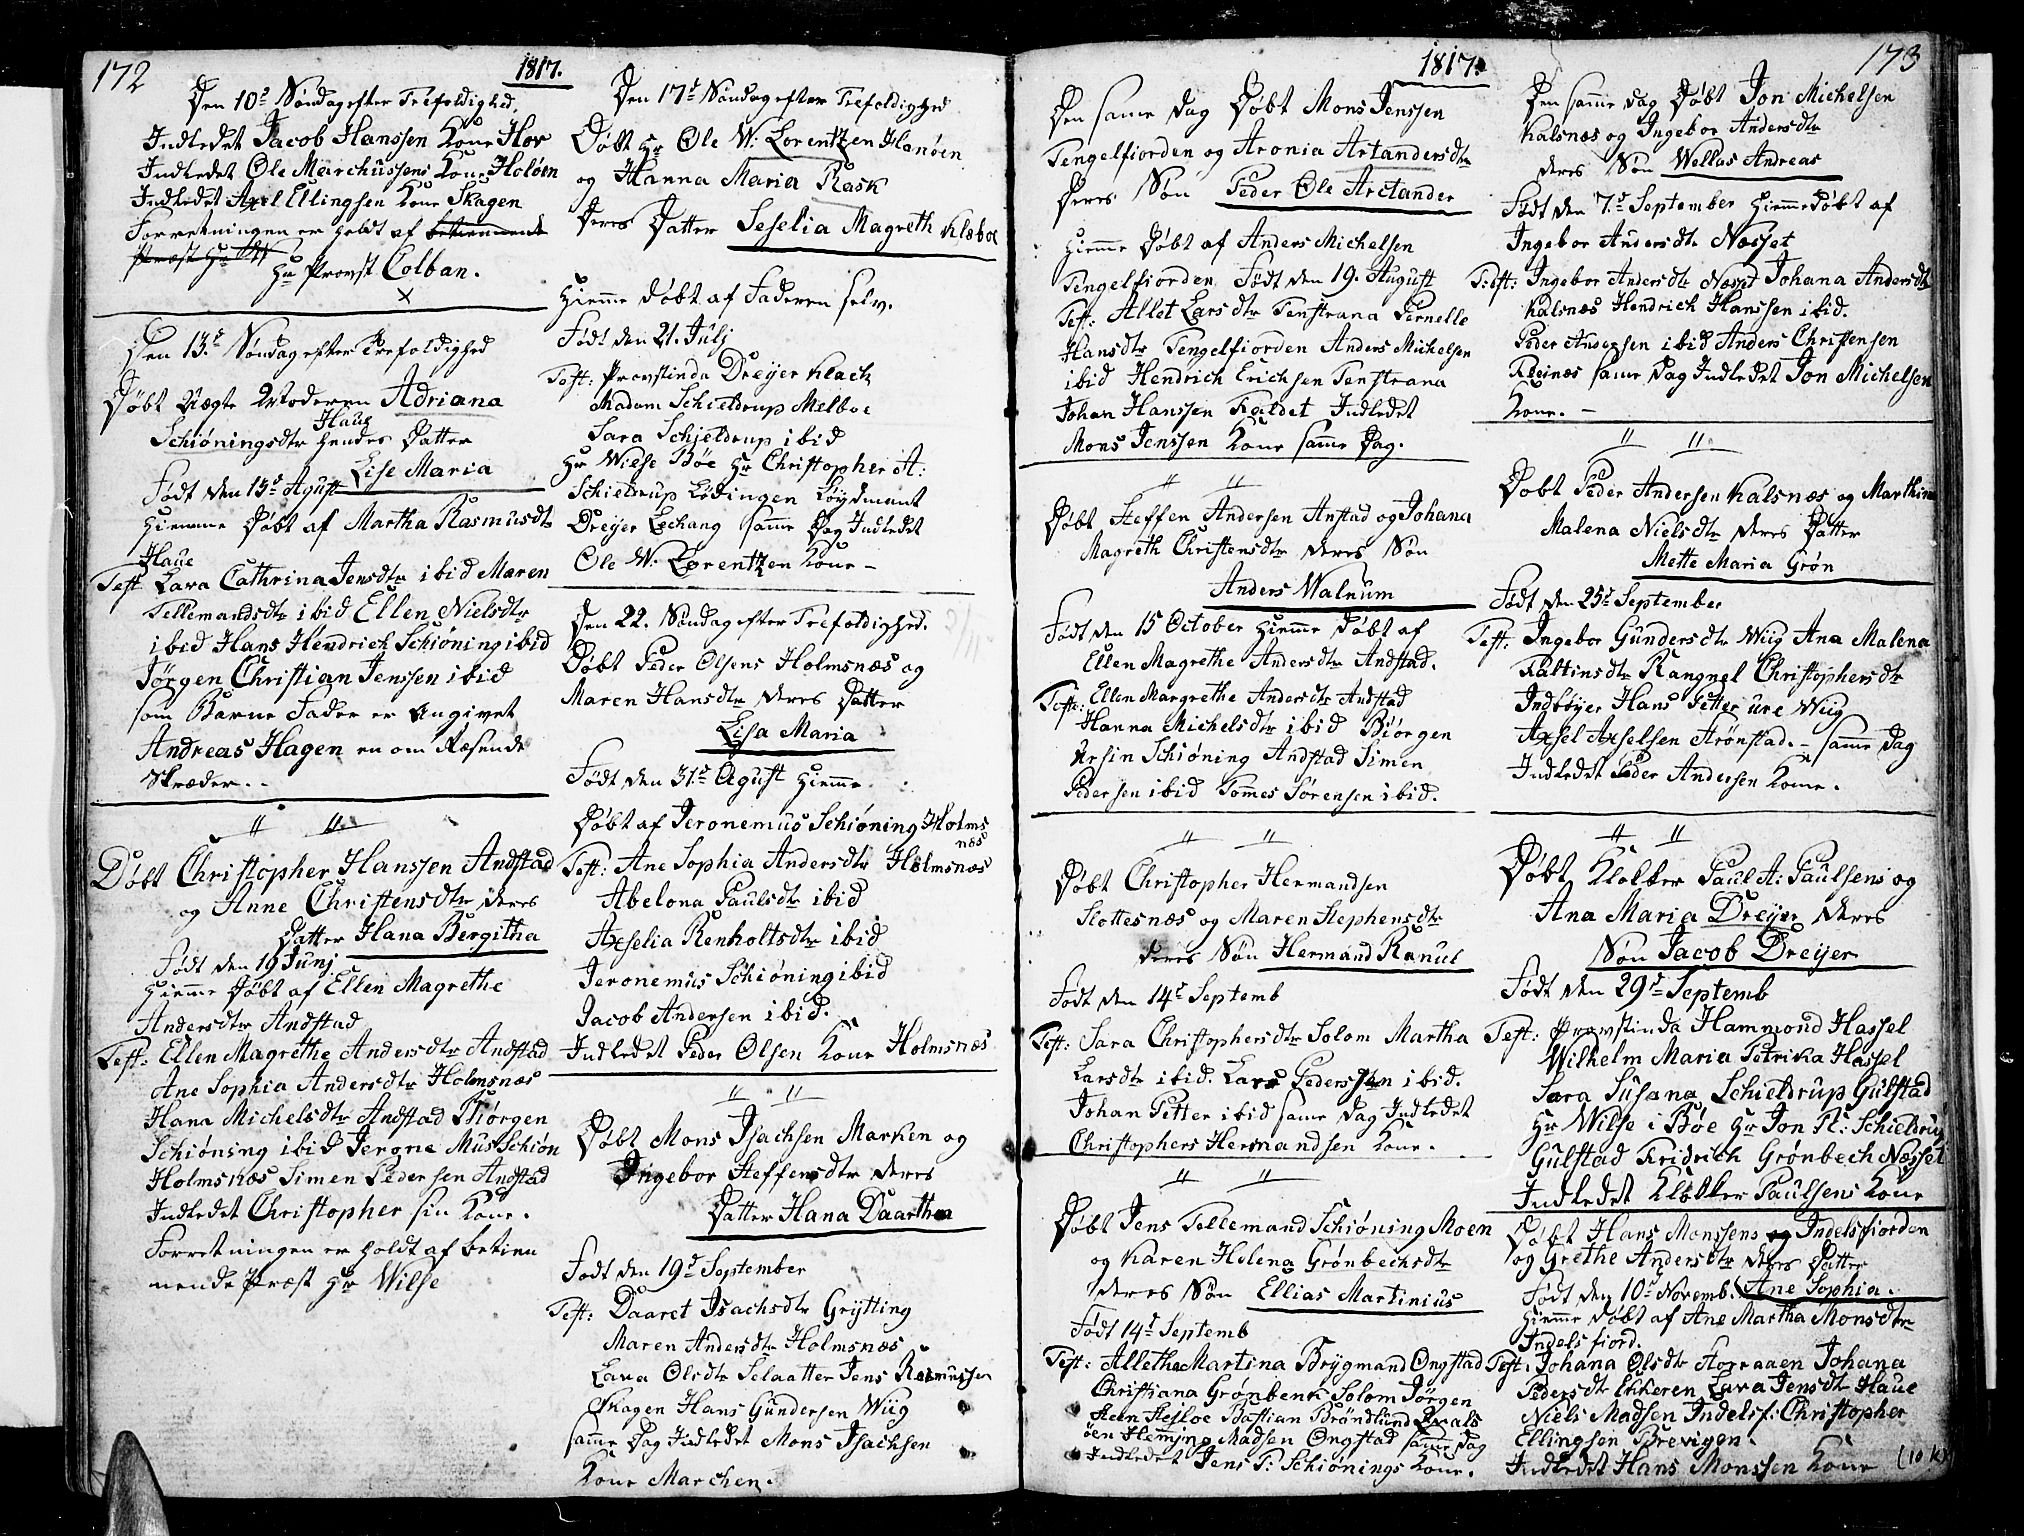 172
1817.
Den 10de Søndag efter Trefoldighed.
Indledet Jacob Hanssen Kone Hov
Indledet Ole Marchussens Kone Holøen
Indledet Axel Ellingsen Kone Skagen
Forretningen er holdt af betiennende
Præst Hr
Hr Provst Colban.
Den 13de Søndag efter Trefoldighed
Døbt Uægte Moderen Adriana
Schiøningsdtr Haug hendes Datter
Lise Maria
Født den 13de Agust
Hiemme Døbt af Martha Rasmusdtr
Haue
Test Lara Cathrina Jensdtr ibid Maren
Tellemandsdtr ibid Ellen Nielsdtr
ibid Hans Hendrich Schiøning ibid
Jørgen Christian Jenssen ibid
som Barne Fader er Angivet
Andreas Hagen en om Ræsende
Skræder.
Døbt Christopher Hanssen Andstad
og Anne Christensdtr deres
Datter Hana Bergitha
Født den 19 Junj
Hiemme Døbt af Ellen Magrethe
Andersdtr Andstad
Test: Ellen Magrethe Andersdtr Andstad
Ane Sophia Andersdtr Holmsnæs
Hana Michelsdtr Andstad Biørgen
Schiøning ibid Jerone Mus Schiøn
Holmsnæs Simen Pedersen Andstad
Indledet Christopher sin Kone.
Forretningen er holdt af betien
nende Præst Hr Wilse
Den 17de Søndag efter Trefoldighed
Døbt Hr Ole W: Lorentzen Hanøen
og Hanna Maria Rask
Deres Datter Seselia Magreth Klæboe
Hiemme døbt af Faderen selv.
Født den 21. Julj
Test: Provstinda Dreyer Klack
Madam Schieldrup Melboe
Sara Schjeldrup ibid
Hr Wilse Bøe Hr Christopher A:
Schieldrup Lødingen Løydmant
Dreyer Lechang samme Dag Indledet
Ole W. Lorentzen Kone
Den 22. Søndag efter Trefoldighed.
Døbt Peder Olsens Holmsnæs og
Maren Hansdtr deres Datter
Lisa Maria
Født den 31te Agust Hiemme
Døbt af Jeronemus Schiøning Holms
næs
Test: Ane Sophia Andersdtr Holmsnæs
Abelona Paulsdtr ibid
Axselia Renholtsdtr ibid
Jeronemus Schiøning ibid
Jacob Andersen ibid.
Indledet Peder Olsen Kone Holmsnæs
Døbt Mons Isachsen Marken og
Ingebor Steffensdtr deres
Datter Hana Daarthea
Født den 19de September
Test: Daaret Isachsdtr Grytting
Maren Andersdtr Holmsnæs
Lava Olsdtr Selaatter Jens Rasmussen
Skagen Hans Gundersen Wiig
samme Dag Indledet Mons Isachsen
Kone Marchen.
1817.
173
Den samme Dag Døbt Mons Jenssen
Tengelfiorden og Aronia Artandersdtr
Deres Søn Peder Ole Arctander
Hiemme Døbt af Anders Michelsen
Tengelfiorden Født den 19. August
Test: Allet Larsdtr Tenstrana Pernelle
Hansdtr Tengelfiorden Anders Michelsen
ibid Hendrich Erichsen Tenstrana
Johan Hanssen Faldet Indledet
Mons Jenssen Kone samme Dag.
Døbt Steffen Andersen Anstad og Johana
Magreth Christensdtr deres Søn
Anders Walnum
Født den 15 October Hiemme Døbt af
Ellen Magrethe Andersdtr Andstad.
Test: Ellen Margrethe Andersdtr Andstad
Hanna Michelsdtr ibid Biørgen
Ursin Schiøning Andstad Simen
Pedersen ibid Tommes Sørensen ibid.
Døbt Christopher Hermandsen
Slottesnæs og Maren Stephensdtr
deres Søn Hermand Ranus
Født den 14de Septemb
Test: Sara Christophersdtr Solom Martha
Larsdtr ibid. Lars Pederssen ibid.
Johan Petter ibid samme Dag Indledet
Christophers Hermandsen Kone.
Døbt Jens Tellemand Schiøning Moen
og Karen Helena Grønbechsdtr
deres Søn Ellias Martinius
Født 14de Septemb
Test: Allethe Martina Brygmand Ongstad
Christiana Grønbenk Solom Jørgen
Steen Stejloe Bastian Brøndlund Hvals
øen Flemming Madsen Ongstad samme Dag
Indledet Jens T: Schiønings Kone.
Den samme Dag Døbt Jon Michelsen
Kalsnæs og Ingebor Andersdtr
deres Søn Wellas Andreas
Født den 7de September Hiemme Døbt af
Ingebor Andersdtr Næsset
Test: Ingebor Andersdtr Næsset Johana Andersdtr
Kalsnæs Hendrich Hanssen ibid.
Peder Andersen ibid Anders Christensen
Fleinæs samme Dag Indledet Jon Michelsen
Kone. -
Døbt Peder Andersen Kalsnæs og Marthin
Malena Nielsdtr deres Datter
Mette Maria Grøn
Født den 25de September
Test: Ingebor Gundersdtr Wiig Ana Malena
Faltinsdtr Rangnel Christophersdtr
Indbøyer Hans Petter ure Wiig
Axsel Axselsen Arønstad. - samme Dag
Indledet Peder Andersen Kone.
Døbt Klokker Paul A: Paulsens og
Ana Maria Dreyer deres
Søn Jacob Dreyer
Født den 29de Septemb
Test: Provstinda Hammond Hassel
Wilhelm Maria Petrika Hassel
Sara Susana Schieldrup Gulstad
Hr Wilse i Bøe Hr Jon Pl: Schieldrup
Gulstad Fridrich Grønbech Næsset
Indledet Klokker Paulsens Kone
Døbt Hans Monssens og Indelsfiorden
og Grethe Andersdtr deres Datter
Født den 10de Novemb. Ane Sophia.
Hiemme Døbt af Ane Martha Monsdtr
Indelsfiord.
Test: Johana Olsdtr Horraaen Johana
Pedersdtr Ekkeren Lava Jensdtr Haue
Niels Madsen Indelsf: Christopher
Ellingsen Brevigen.
Indledet Hans Monssen Kone (10 K)